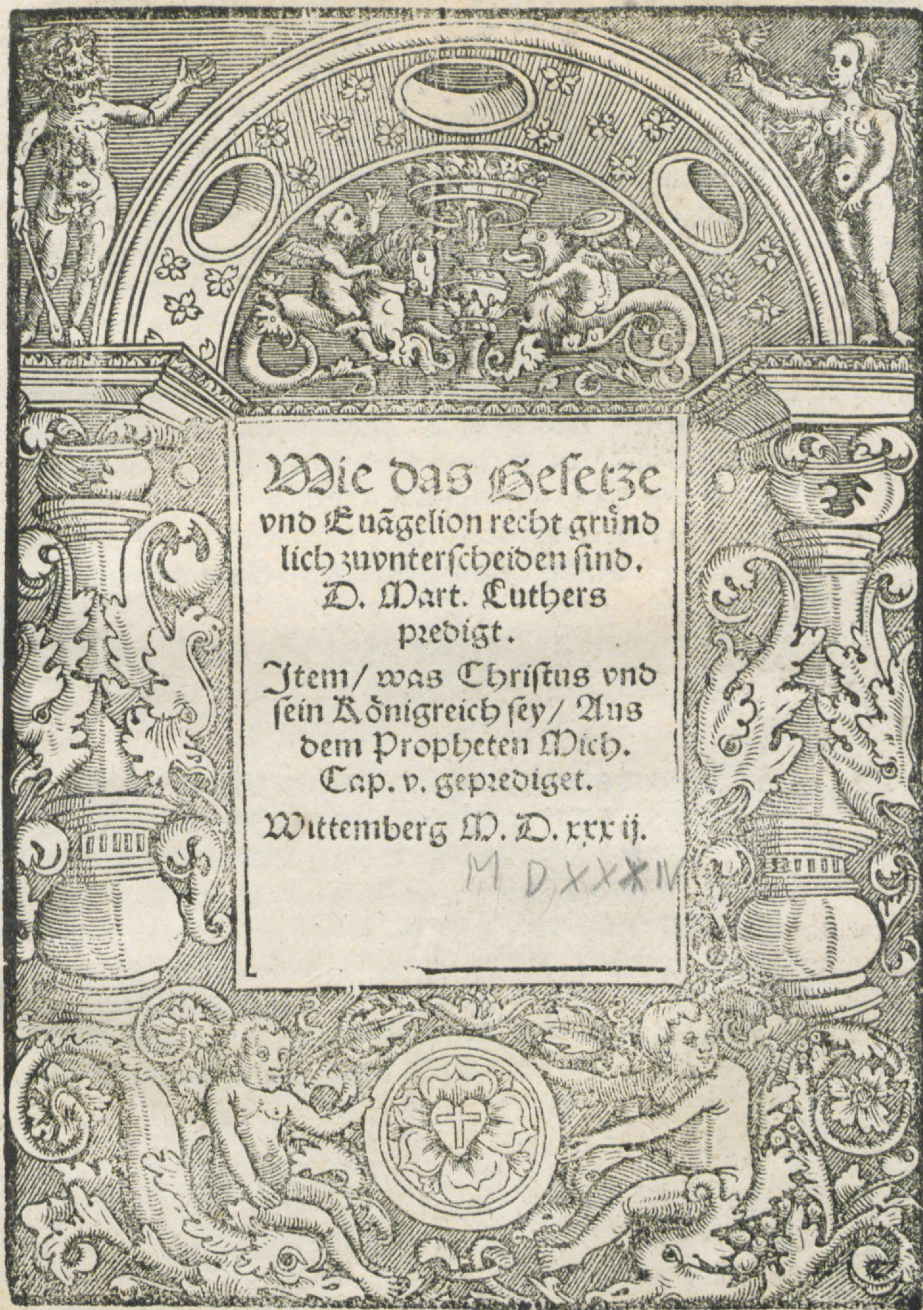 Wie das Gesetze
vnd Euãgelion recht gründ
lich zuvnterscheiden sind.
D. Mart. Luthers
predigt.
Item/ was Christus vnd
sein Königreich sey/ Aus
dem Propheten Mich.
Cap. v. geprediget.
Wittemberg M. D. xxxij.
M D XXXIV